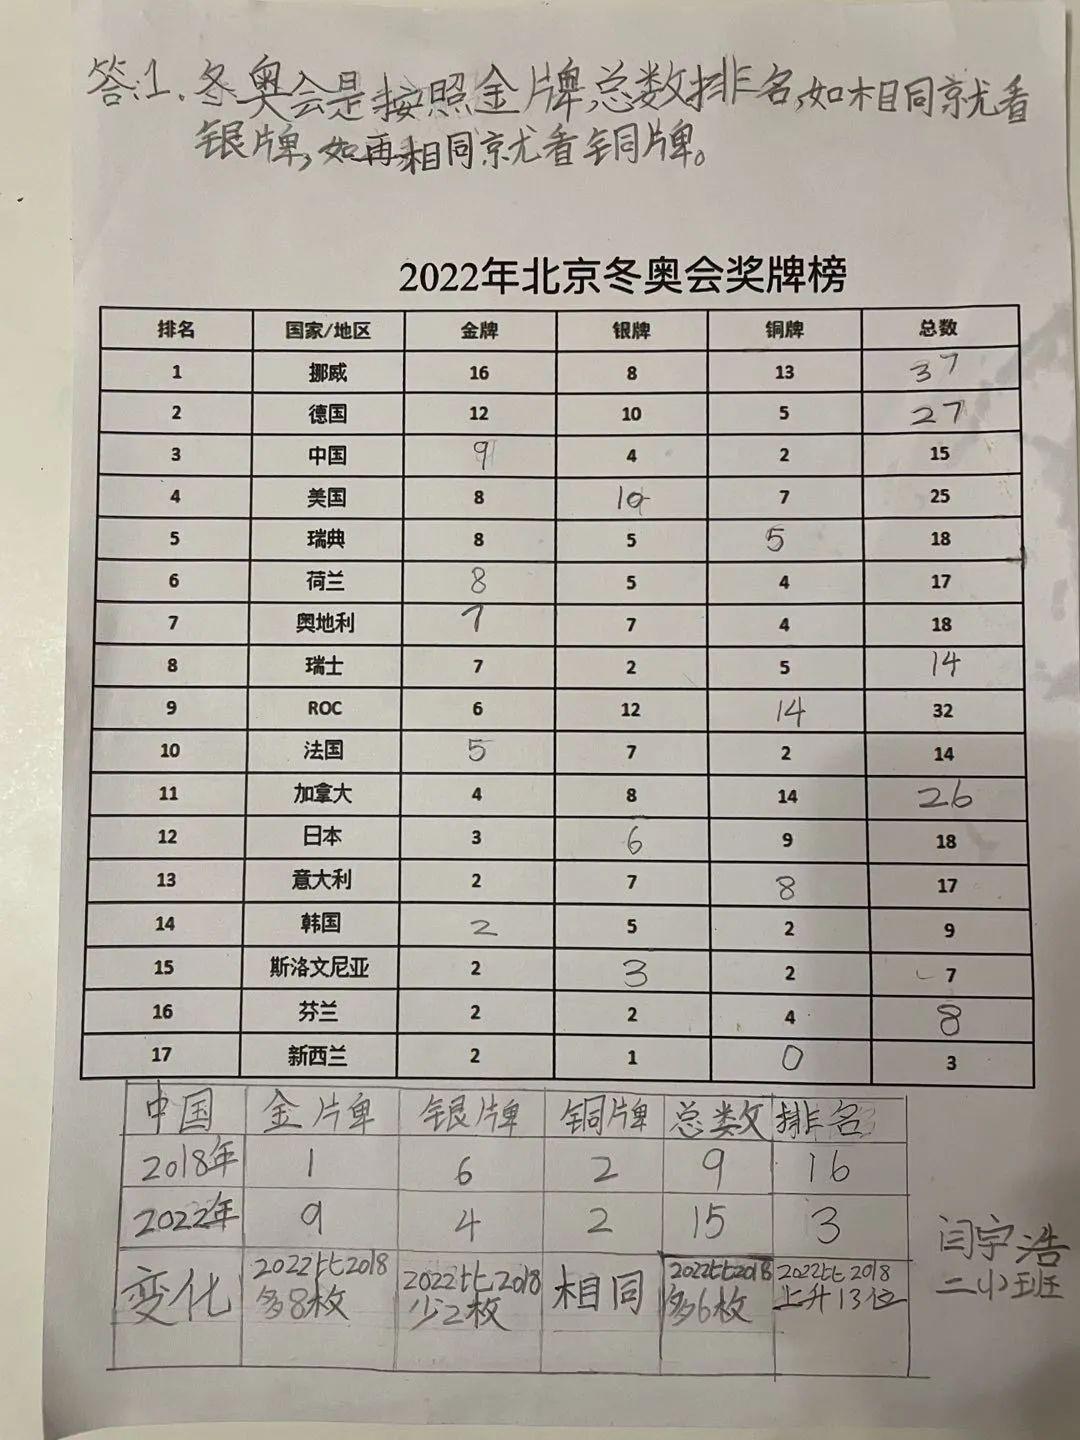 答:1、冬奥会是按照金牌总数排名,如相同就看
银牌,如再相同就看铜牌。
2022年北京冬奥会奖牌榜
排名 国家/地区 金牌 银牌 铜牌 总数
1 挪威 16 8 13 37
2 德国 12 10 5 27
3 中国 9 4 2 15
4 美国 8 10 7 25
5 瑞典 8 5 5 18
6 荷兰 8 5 4 17
7 奥地利 7 7 4 18
8 瑞士 7 2 5 14
9 ROC 6 12 14 32
10 法国 5 7 2 14
11 加拿大 4 8 14 26
12 日本 3 6 9 18
13 意大利 2 7 8 17
14 韩国 2 5 2 9
15 斯洛文尼亚 2 3 2 7
16 芬兰 2 2 4 8
17 新西兰 2 1 0 3
中国 金牌 银牌 铜牌 总数 排名
2018年 1 6 2 9 16
2022年 9 4 2 15 3
变化 2022比2018多8枚 2022比2018少2枚 相同 2022比2018多6枚 2022比2018上升13位
闫宇浩
二小班